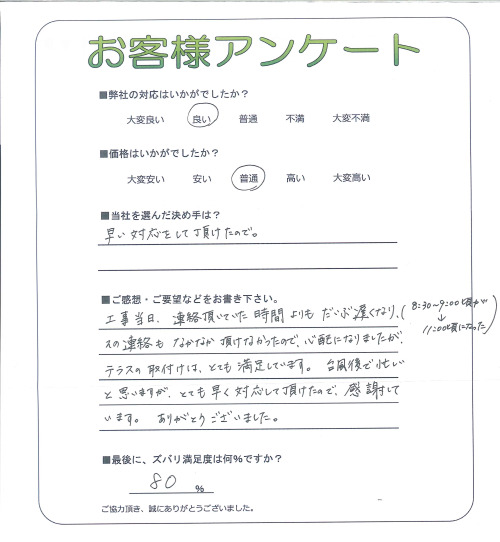 お客様アンケート
■弊社の対応はいかがでしたか？
大変良い 良い 普通 不満 大変不満
■価格はいかがでしたか？
大変安い 安い 普通 高い 大変高い
■当社を選んだ決め手は？
早い対応をして頂けたので。
■ご感想・ご要望などをお書き下さい。
工事当日、連絡頂いていた時間よりもだいぶ遅くなり、(8:30～9:00頃が
↓
11:00頃になった)
その連絡もなかなか頂けなかったので、心配になりましたが、
テラスの取付けは、とても満足しています。台風後で忙しい
と思いますが、とても早く対応して頂けたので、感謝して
います。ありがとうございました。
■最後に、ズバリ満足度は何％ですか？
80 %
ご協力頂き、誠にありがとうございました。